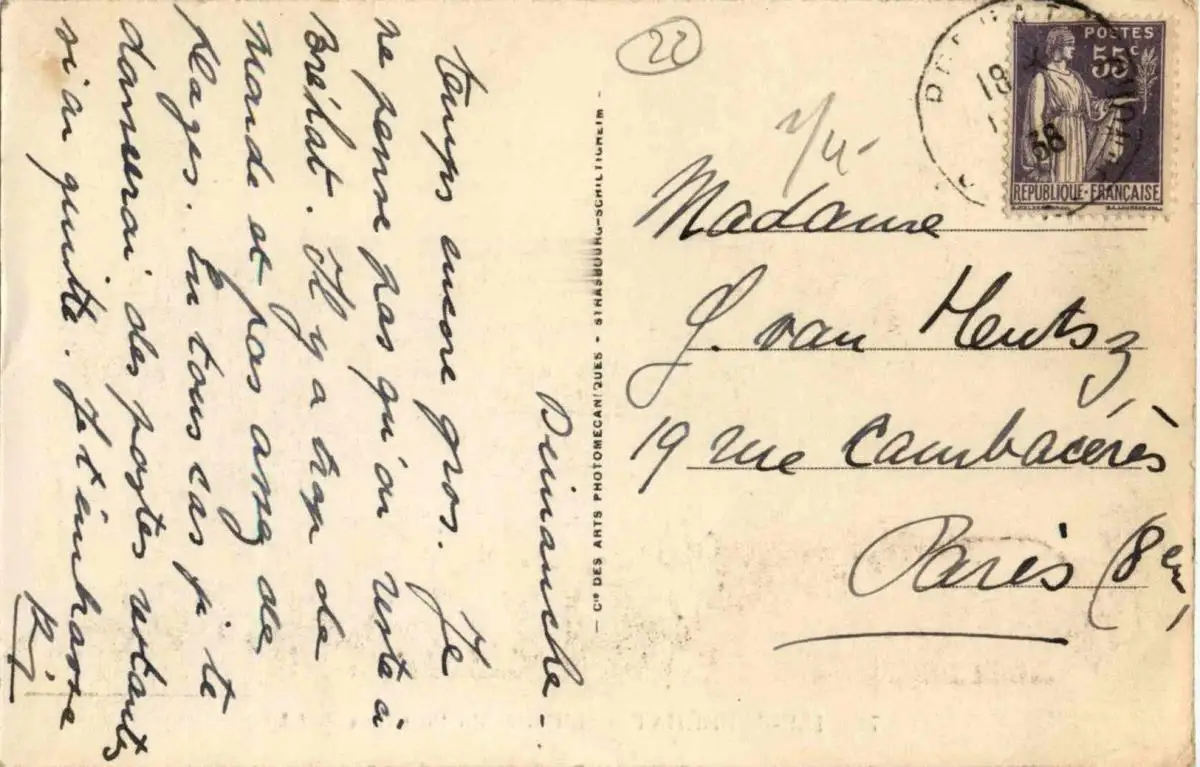 Dimanche -
Temps encore gros. Je
ne pense pas qu'on reste à
Bréhat. Il y a trop de
monde et pas assez de
plages. En tous cas je te
donnerai des postes restantes
si on quitte. Je t'embrasse
22
1/4-
Madame
J. van Heutsz
19 rue Cambacérès
Paris (8em)
POSTES
55c
REPUBLIQUE-FRANÇAISE
18
38
- Cie DES ARTS PHOTOMECANIQUES - STRASBOURG-SCHILTIGHEIM -